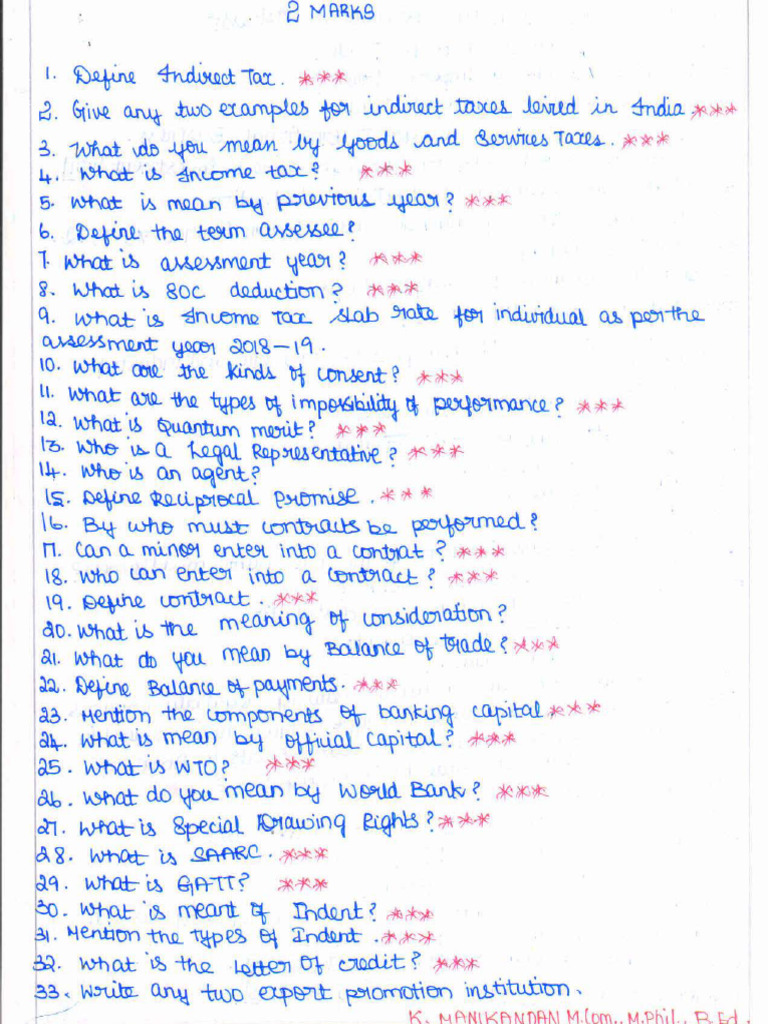 2 MARKS
1. Define Indirect Tax. ***
2. Give any two examples for indirect taxes leived in India ***
3. What do you mean by Goods and Services Taxes. ***
4. What is Income tax? ***
5. What is mean by previous year? ***
6. Define the term assessee?
7. What is assessment year? ***
8. What is 80C deduction? ***
9. What is Income Tax slab rate for individual as per the
assessment year 2018-19.
10. What are the kinds of consent? ***
11. What are the types of impossibility of performance? ***
12. What is Quantum merit? ***
13. Who is a Legal Representative? ***
14. Who is an agent?
15. Define Reciprocal Promise. ***
16. By who must contracts be performed?
17. Can a minor enter into a contrat? ***
18. Who can enter into a contract? ***
19. Define contract. ***
20. What is the meaning of consideration?
21. What do you mean by Balance of trade? ***
22. Define Balance of payments. ***
23. Mention the components of banking capital ***
24. What is mean by official capital? ***
25. What is WTO? ***
26. What do you mean by World Bank? ***
27. What is Special Drawing Rights? ***
28. What is SAARC. ***
29. What is GATT? ***
30. What is meant of Indent? ***
31. Mention the types of Indent. ***
32. What is the Letter of credit? ***
33. Write any two export promotion institution.
K. MANIKANDAN M.Com., M.Phil., B.Ed.